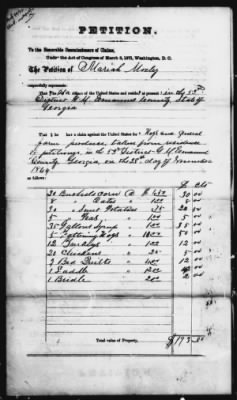 PETITION.
To the Honorable Commissioners of Claims,
Under the Act of Congress of March 3, 1871, Washington, D. C.
The Petition of Mariah Morely
respectfully represents:
That She is a citizen of the United States and resides in the 53rd
District G. M. Emanuel County State of
Georgia
That She has a claim against the United States for Hogs and general
farm produce taken from residence
of petitioner, in the 53rd District G M Emanuel
County Georgia, on the 28th day of November
1864
as follows:
$ Cts
30 Bushels Corn @ $ 1.00 30 00
8 " Oats " 1.00 8 00
20 " Sweet Potatoes 20 00
5 " Peas 1.00 5 00
35 Gallons Syrup 1.00 35 00
5 Hogs 50 00
12 1.00 12 00
20 Chickens 5 00
3 Bed Quilts 4.00 12 00
1 Saddle
1 Bridle 2 00
Total value of Property,